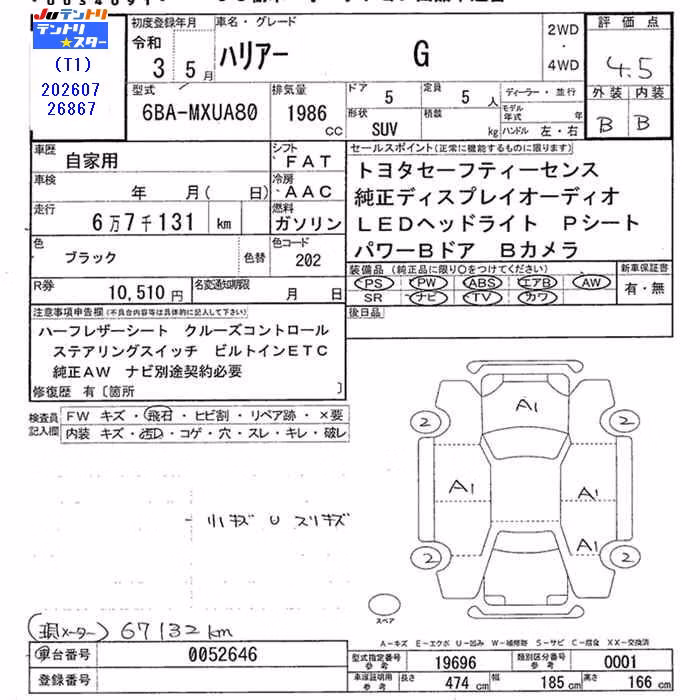 JU テントリ
テントリ★スター
(T1)
202607
26867
初度登録年月
令和
3 5月
車名・グレード
ハリアー G
2WD
・
4WD
評価点
4.5
型式
6BA-MXUA80
排気量
1986
CC
ドア
5
定員
5 人
形状
SUV
積載
kg
ディーラー・並行
モデル年式 年
ハンドル 左・右
外装 内装
B B
車歴
自家用
シフト
FAT
車検
年 月( 日)
冷房
AAC
走行
6万7千131 km
燃料
ガソリン
色
ブラック
色替
色コード
202
R券
10,510円
名変通知期限
月 日
セールスポイント(正常に機能するものに限ります)
トヨタセーフティーセンス
純正ディスプレイオーディオ
LEDヘッドライト Pシート
パワーBドア Bカメラ
装備品(純正品に限り○をつけてください)
PS PW ABS エアB AW
SR ナビ TV カワ
新車保証書
有・無
後日品
注意事項申告欄(不具合内容等は具体的に記入して下さい)
ハーフレザーシート クルーズコントロール
ステアリングスイッチ ビルトインETC
純正AW ナビ別途契約必要
修復歴 有〔箇所 〕
検査員記入欄
FW キズ・飛石・ヒビ割・リペア跡・×要
内装 キズ・汚D・コゲ・穴・スレ・キレ・破レ
小キズ U スリキズ
A1
2 2
A1 A1
A1
2 2
スペア
(現メーター) 67132km
A-キズ E-エクボ U-凹み W-補修跡 S-サビ C-腐食 XX-交換済
車台番号
0052646
登録番号
型式指定番号
参考
19696
類別区分番号
参考
0001
車検証明用
参考
長さ
474 cm
幅
185 cm
高さ
166 cm